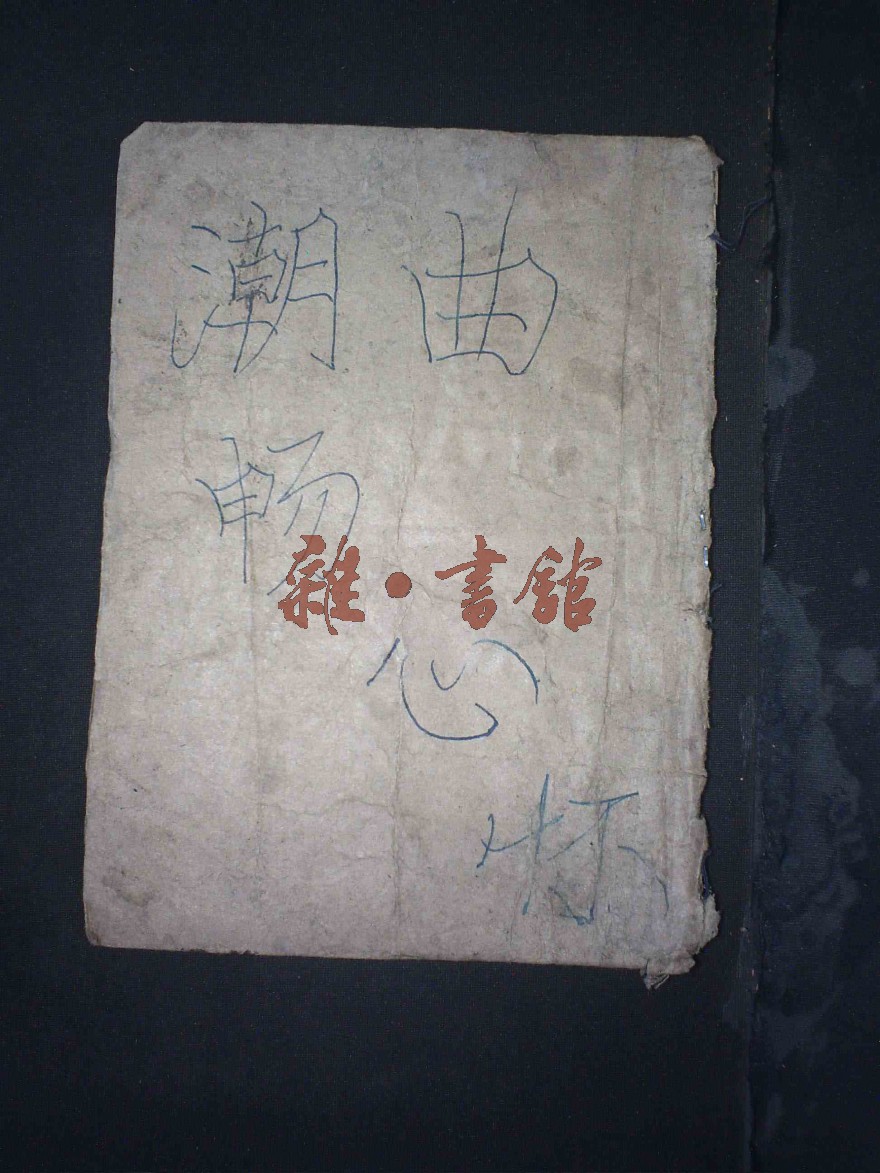 潮曲
畅
雜·書館
心
怀